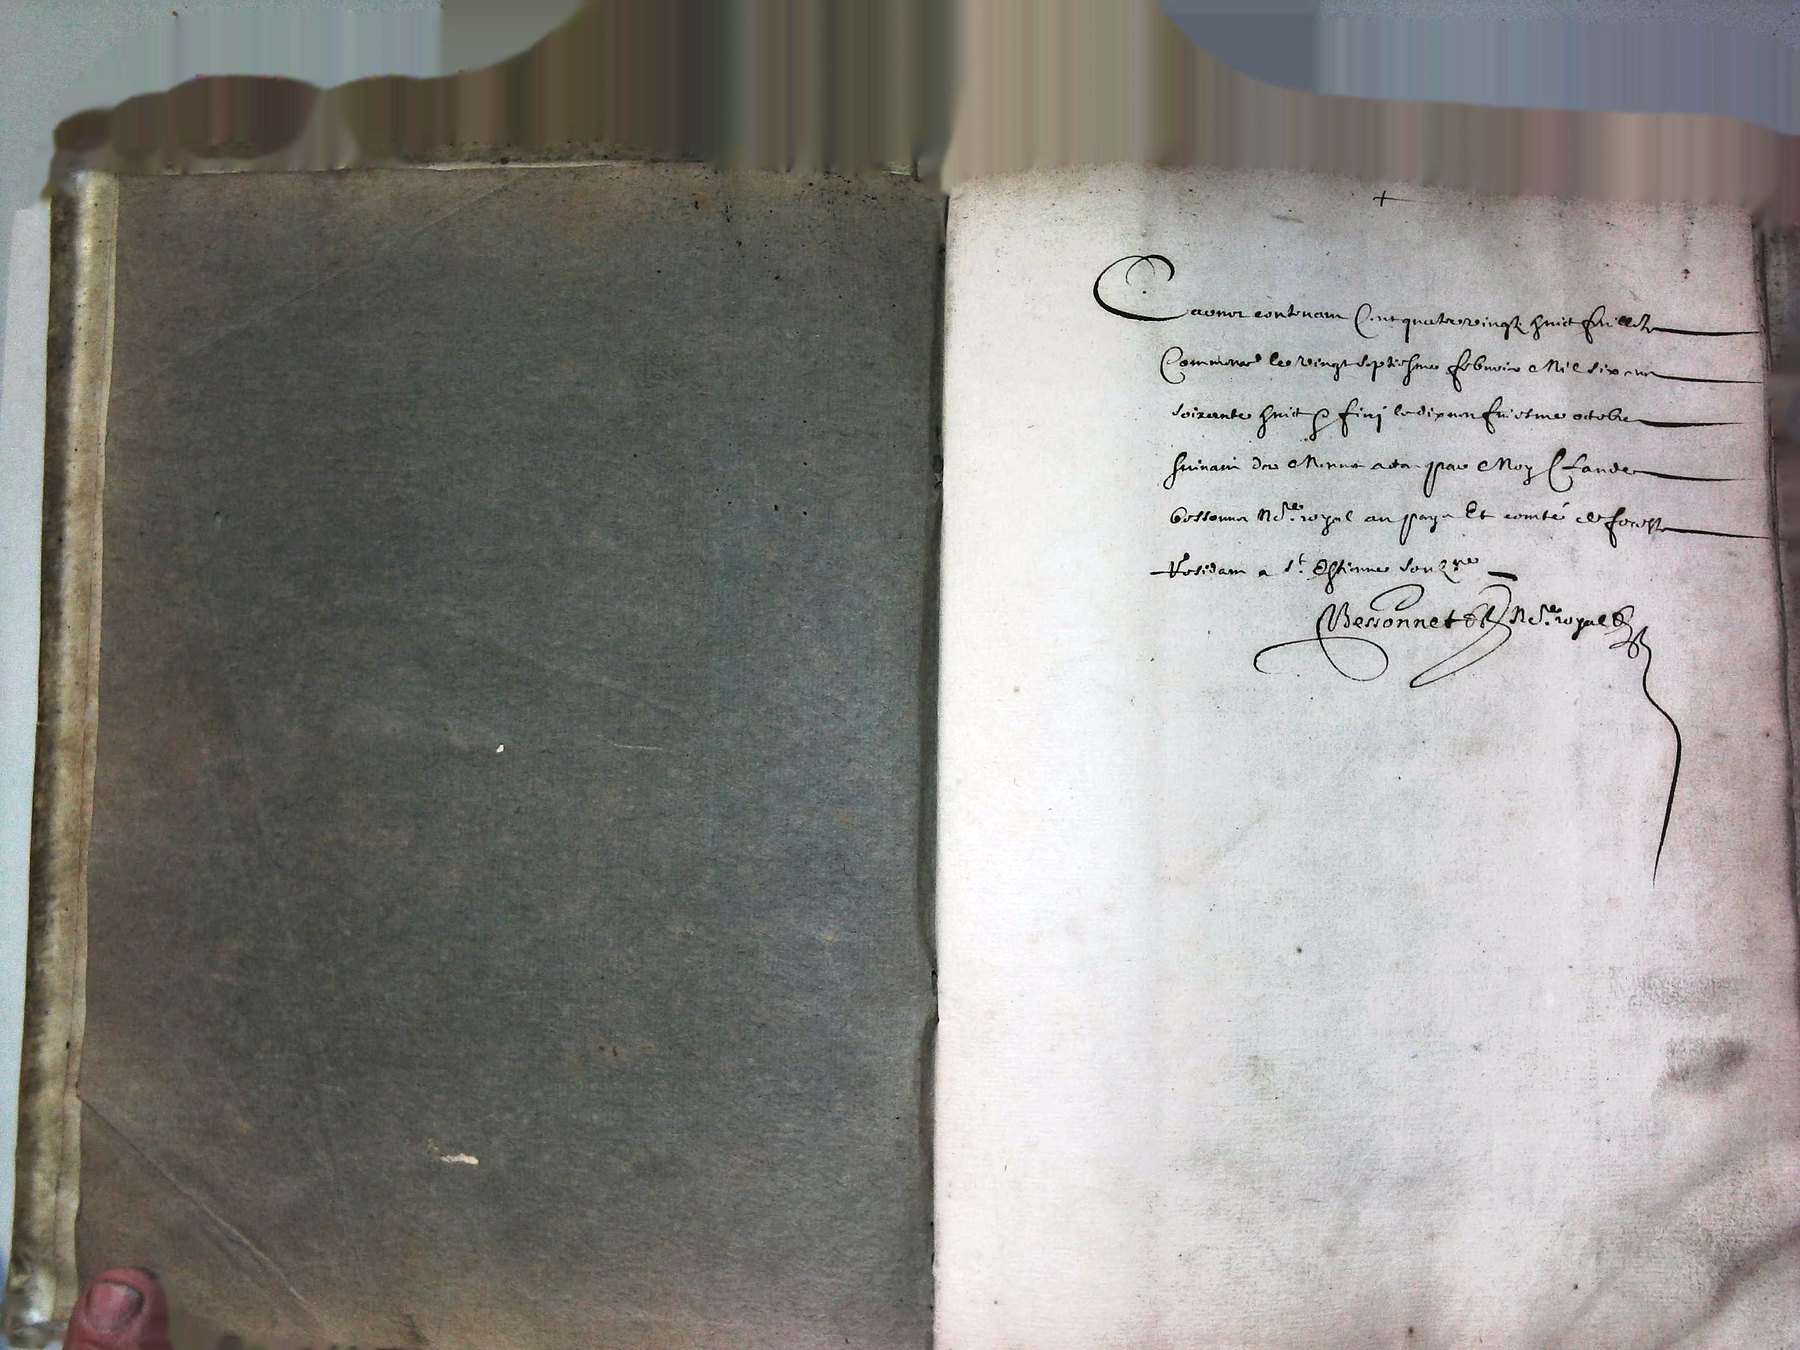 +
Cayer contenant Cent quatre vingt huit feuillets
Commencé le vingt septiesme febvrier Mil six cent
soixante huict & finy le dix neufviesme octobre
suivant de Mesme par Moy Claude
bessonnet No.re royal au pays Et comté de forestz
Residant a St Estienne soubz.né
Bessonnet No.re royal